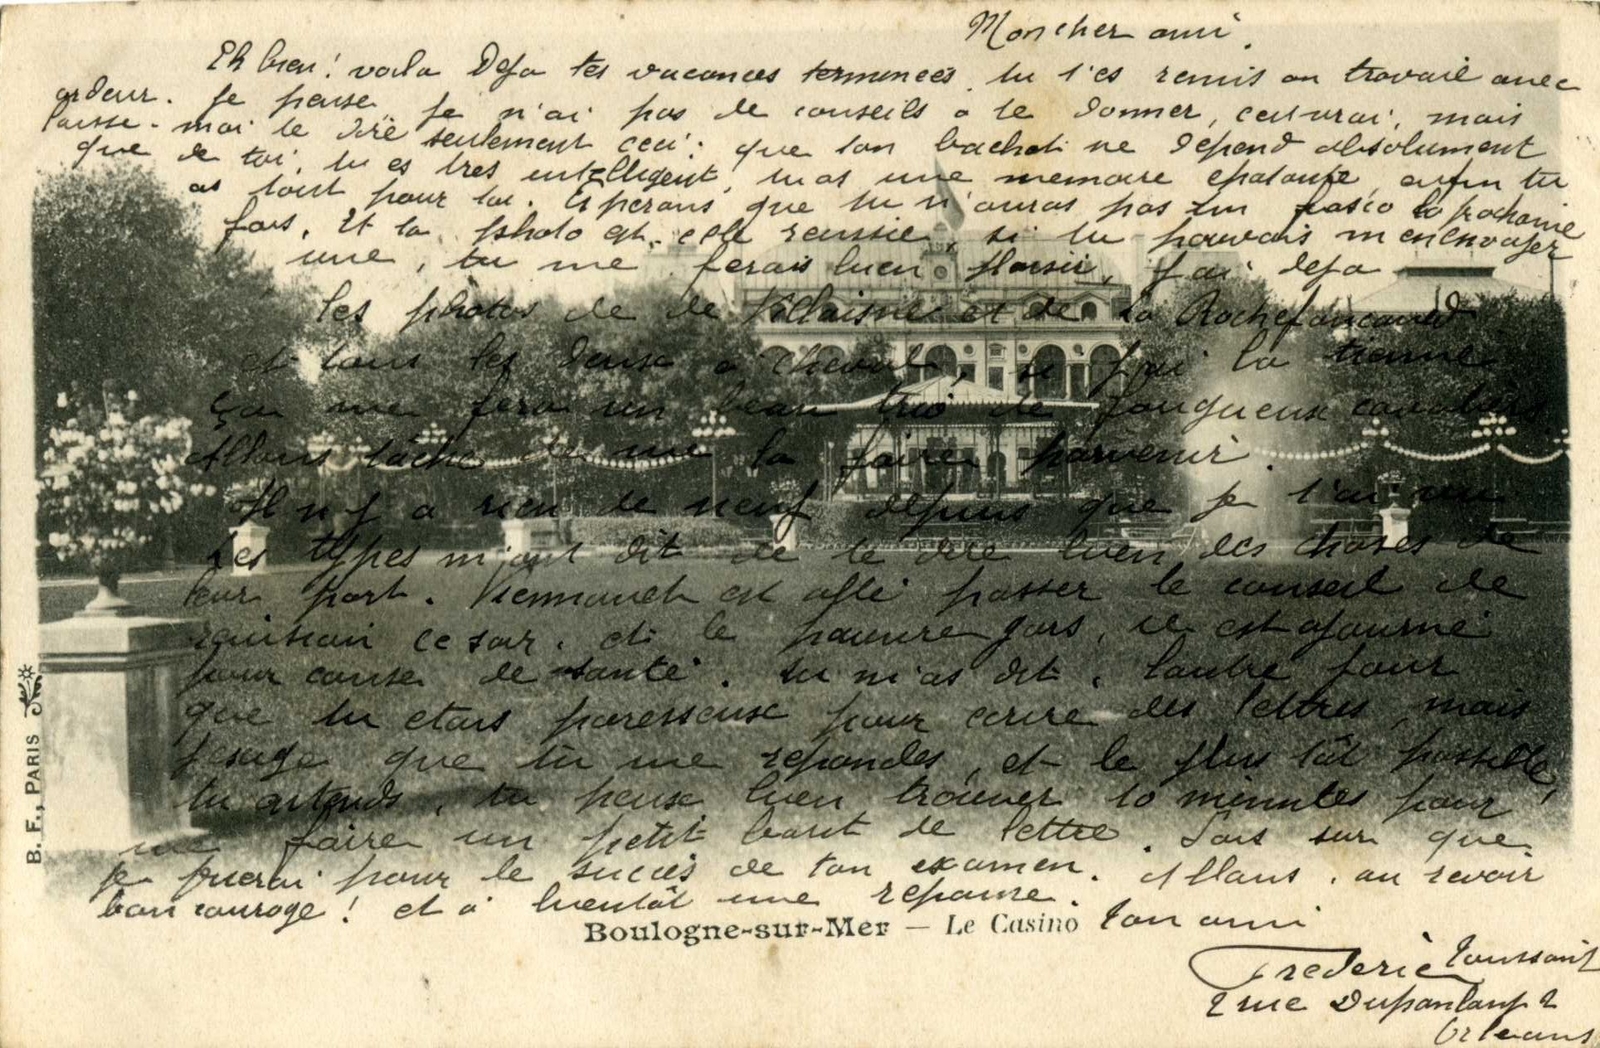 Mon cher ami,
Eh bien! voila deja tes vacances terminées, tu t'es remis au travail avec
ardeur. Je pense je n'ai pas de conseils a te donner, c'est vrai, mais
laisse-moi te dire seulement ceci: que ton bachot ne depend absolument
que de toi, tu es tres intelligent, tu as une memoire epatante, enfin tu
as tout pour toi. Esperons que tu n'auras pas un fiasco la prochaine
fois. Et la photo est-elle reussie, si tu pouvais m'en envoyer
une, tu me ferais bien plaisir, j'ai deja
les photos de de Villaisne et de La Rochefoucauld
et tous les deux a cheval, si j'ai la tienne
ça me fera un beau trio de fougueux cavaliers
Allons tâche de me la faire parvenir.
Il n'y a rien de neuf depuis que je t'ai vu
Les types m'ont dit de te dire bien des choses de
leur part. est allé passer le conseil de
revision ce soir, et le pauvre gars, il est ajourné
pour cause de santé. Tu m'as dit, l'autre jour
que tu etais paresseux pour ecrire des lettres, mais
j'exige que tu me repondes, et le plus tôt possible,
tu entends, tu peux bien trouver 10 minutes pour
me faire un petit bout de lettre. Sois sur que
je prierai pour le succès de ton examen. Allons, au revoir
bon courage! et à bientôt une reponse.
Boulogne-sur-Mer — Le Casino
Ton ami
Frederic Toussaint
2 rue Dupanloup 2
Orleans
B. F., PARIS